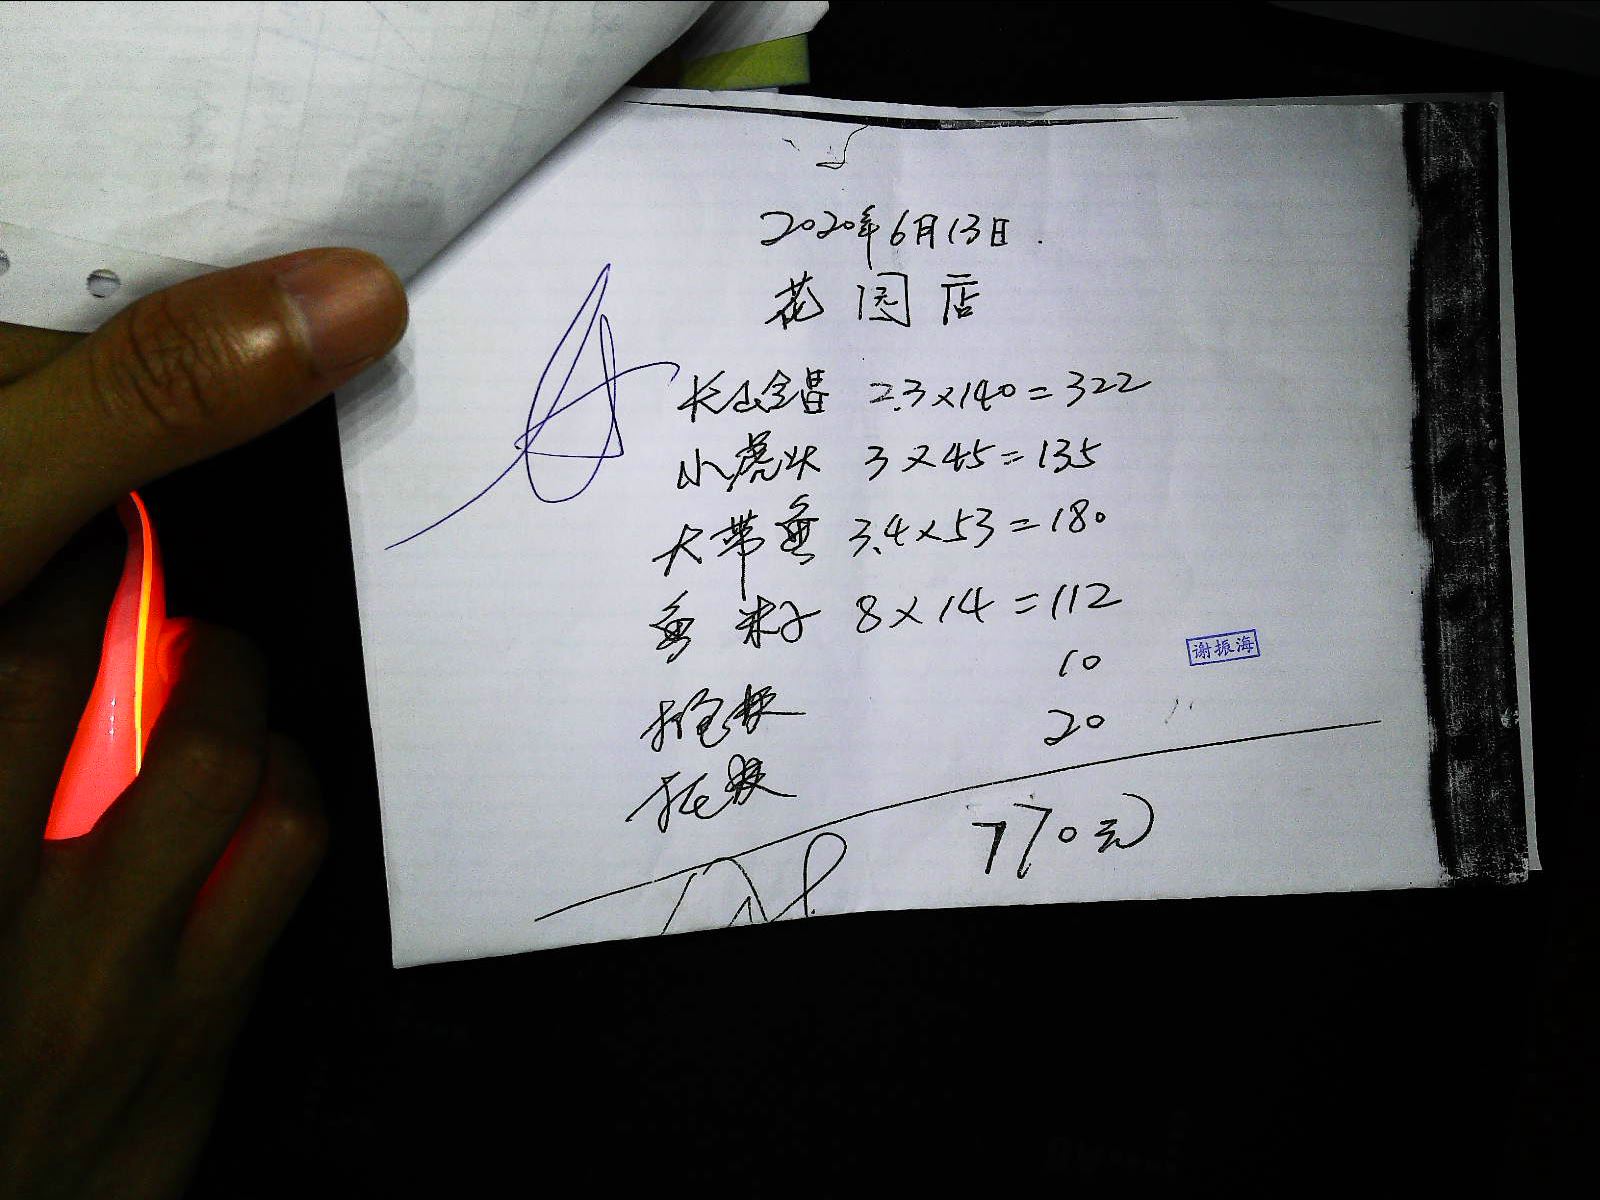 2020年6月13日.
花园店
长山仓昌 2.3×140=322
小虎头 3×45=135
大带鱼 3.4×53=180
鱼籽 8×14=112
10
谢振海
20
770元